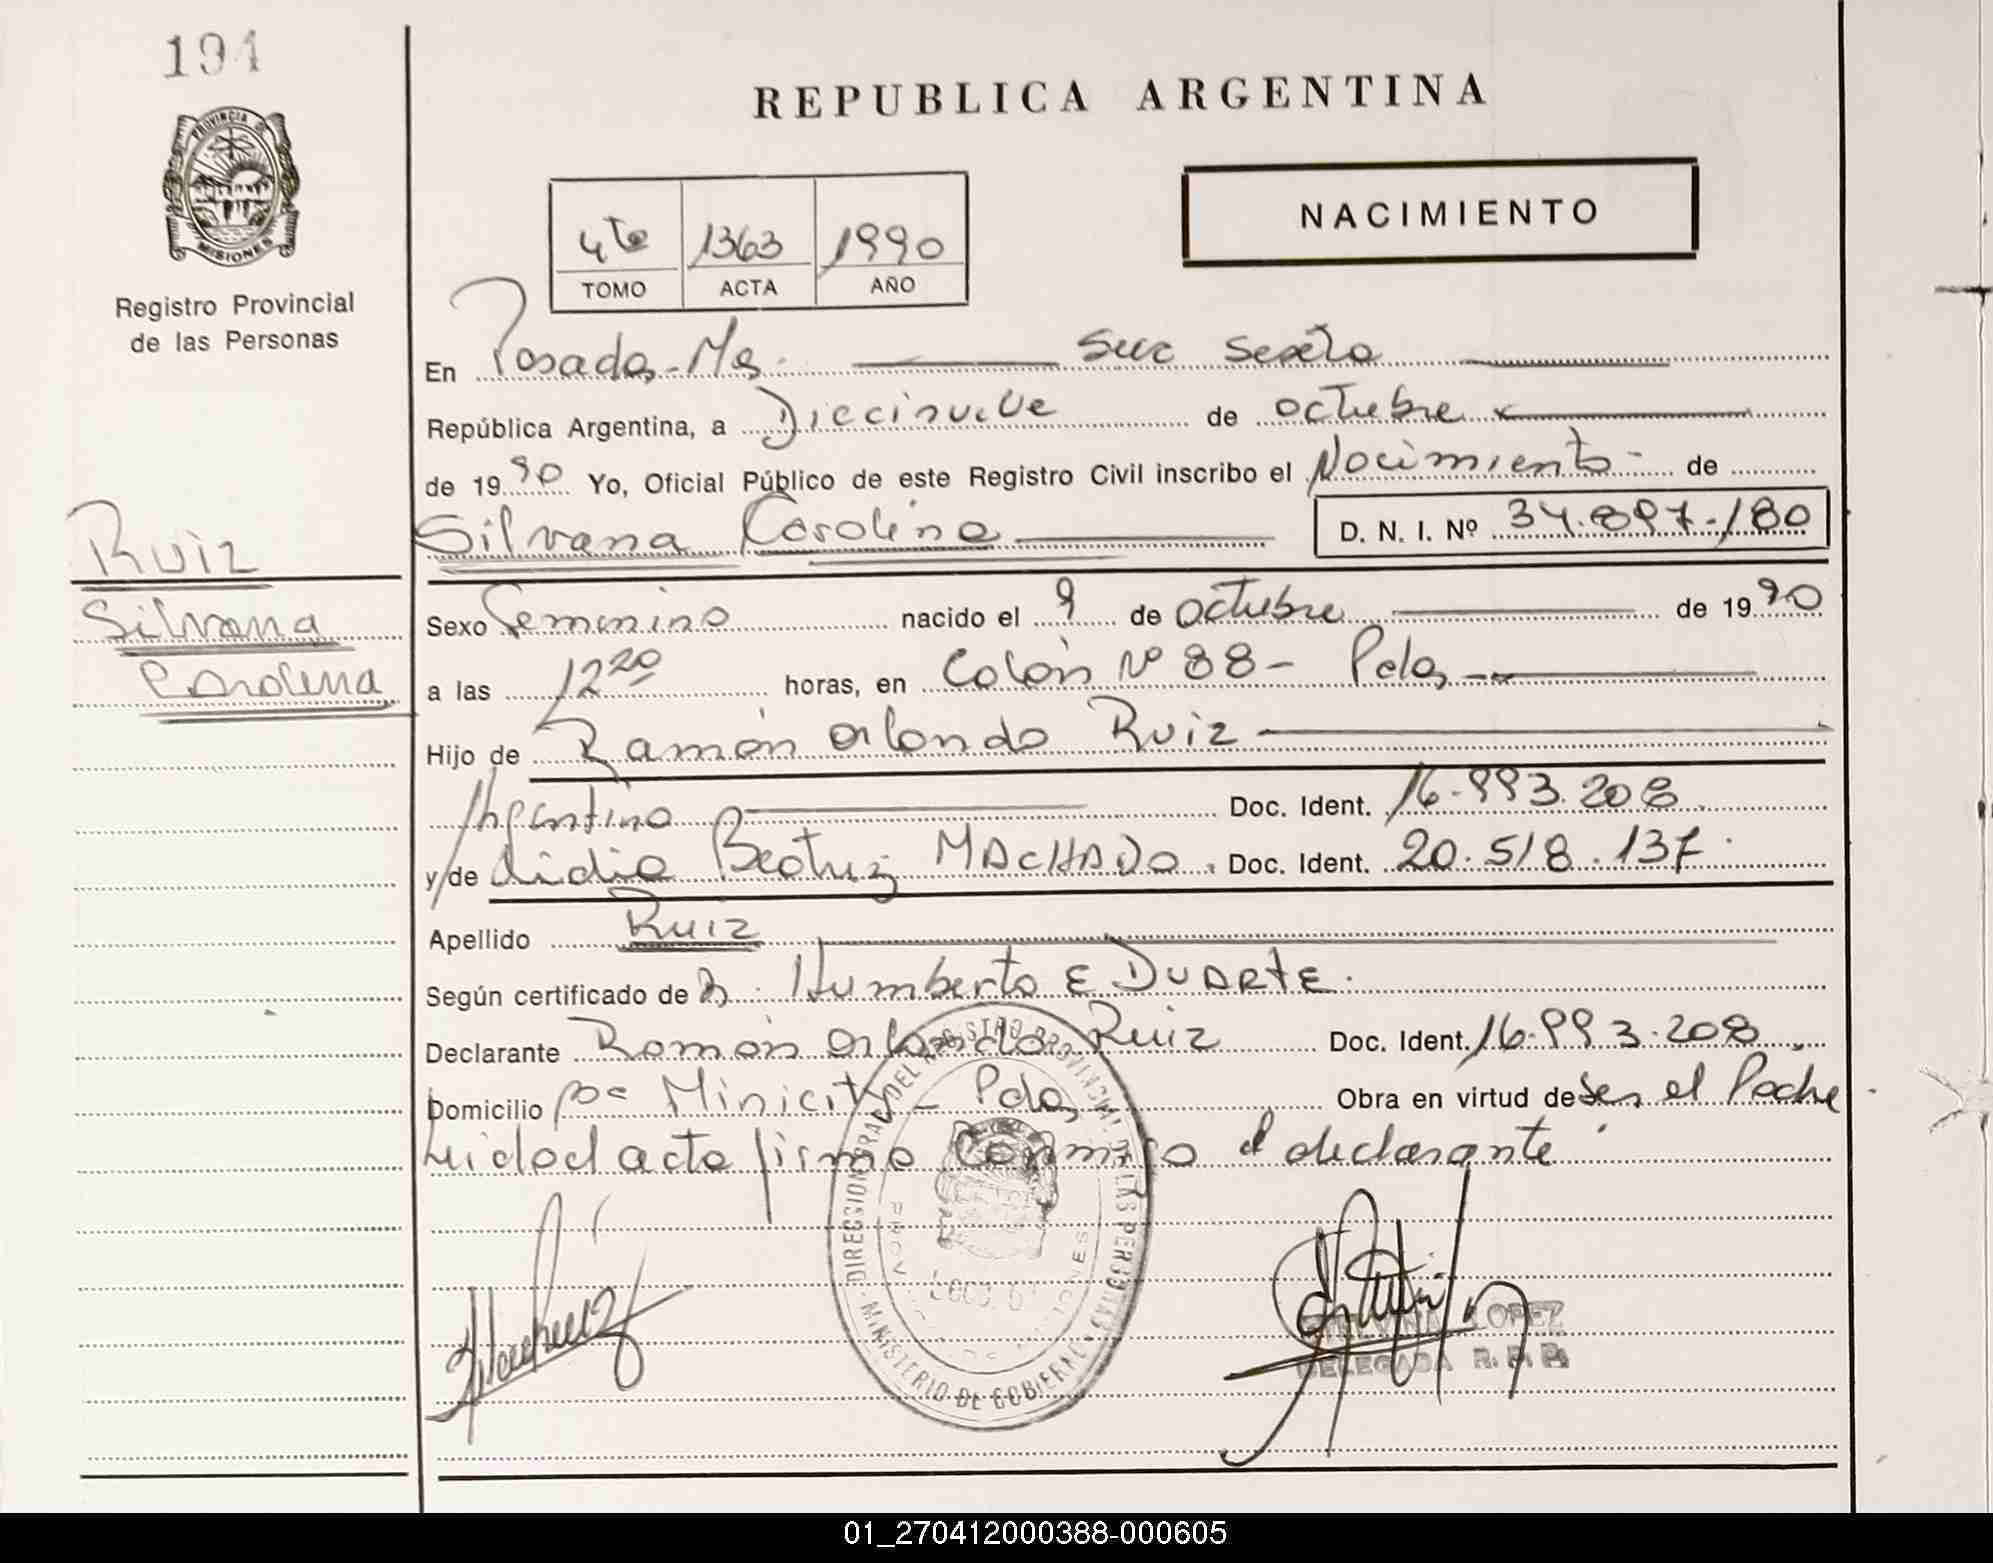 194
PROVINCIA DE
MISIONES
Registro Provincial
de las Personas
REPUBLICA ARGENTINA
NACIMIENTO
4to 1363 1990
TOMO ACTA AÑO
En Posadas - Ms. Suc Sexta
República Argentina, a Diecinueve de octubre
de 1990 Yo, Oficial Público de este Registro Civil inscribo el Nacimiento - de
Silvana Carolina D. N. I. Nº 34.897.180
Ruiz
Silvana
Carolina
Sexo Femenino nacido el 9 de octubre de 1990
a las 12 20 horas, en Colón Nº 88 - Pdas
Hijo de Ramón Orlando Ruiz
Argentino Doc. Ident. 16.993.208
y de Lidia Beatriz MACHADO. Doc. Ident. 20.518.137
Apellido Ruiz
Según certificado de Humberto E DUARTE.
Declarante Ramón Orlando Ruiz Doc. Ident. 16.993.208
Domicilio Minicity - Pdas Obra en virtud de ser el Padre
Leida el acta firma conmigo el declarante
DIRECCION GRAL DEL REGISTRO PROVINCIAL DE LAS PERSONAS
MINISTERIO DE GOBIERNO
LOPEZ
DELEGADA R. P. P.
01_270412000388-000605